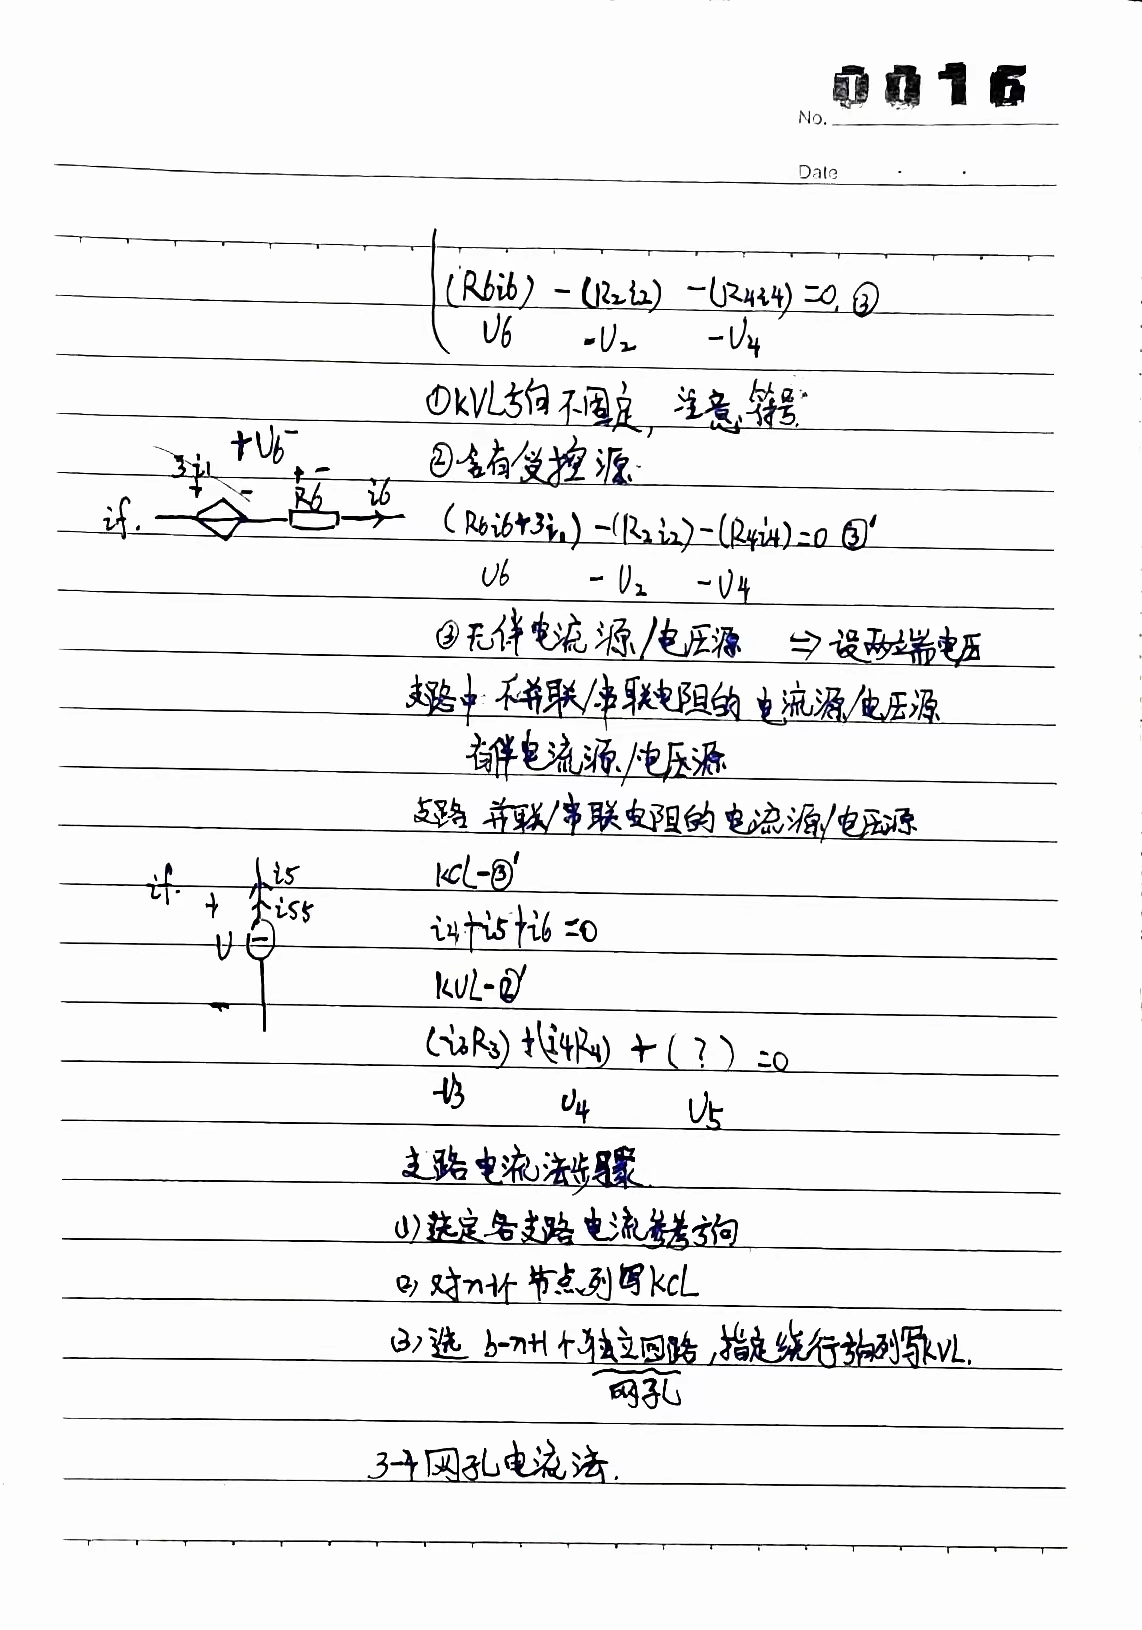 0016
No.
Date
(R6i6) - (R2i2) - (R4i4) = 0. ③
U6 -U2 -U4
①KVL方向不固定, 注意符号.
+U6-
②含有受控源.
3i1 + - + - R6 i6
if. (R6i6+3i1) - (R2i2) - (R4i4) = 0 ③'
U6 -U2 -U4
③无伴电流源/电压源 => 设两端电压
支路中 不并联/串联电阻的 电流源/电压源
有伴电流源/电压源
支路 并联/串联电阻的 电流源/电压源
if. i5 KCL-③'
+ is5
U - i4+i5+i6=0
KVL-②'
(-i3R3) + (i4R4) + (?) = 0
-U3 U4 U5
支路电流法步骤.
(1) 选定各支路电流参考方向
(2) 对n-1个 节点列写KCL
(3) 选 b-n+1个独立回路, 指定绕行方向列写KVL.
网孔
3-4 网孔电流法.